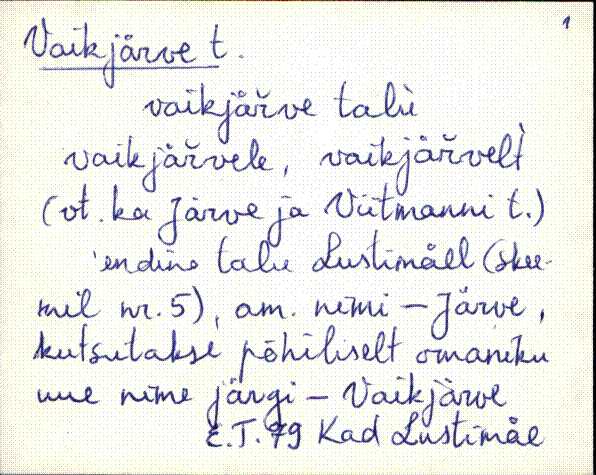 1
Vaikjärve t.
vaikjäřve talu̇̀
vaikjäřvele, vaikjäřvel̀t
(vt. ka Järve ja Viitmanni t.)
'endine talu Lustimäel (skee-
mil nr. 5), am. nimi – Järve,
kutsutakse põhiliselt omaniku
uue nime järgi – Vaikjärve
E.T. 79 Kad Lustimäe